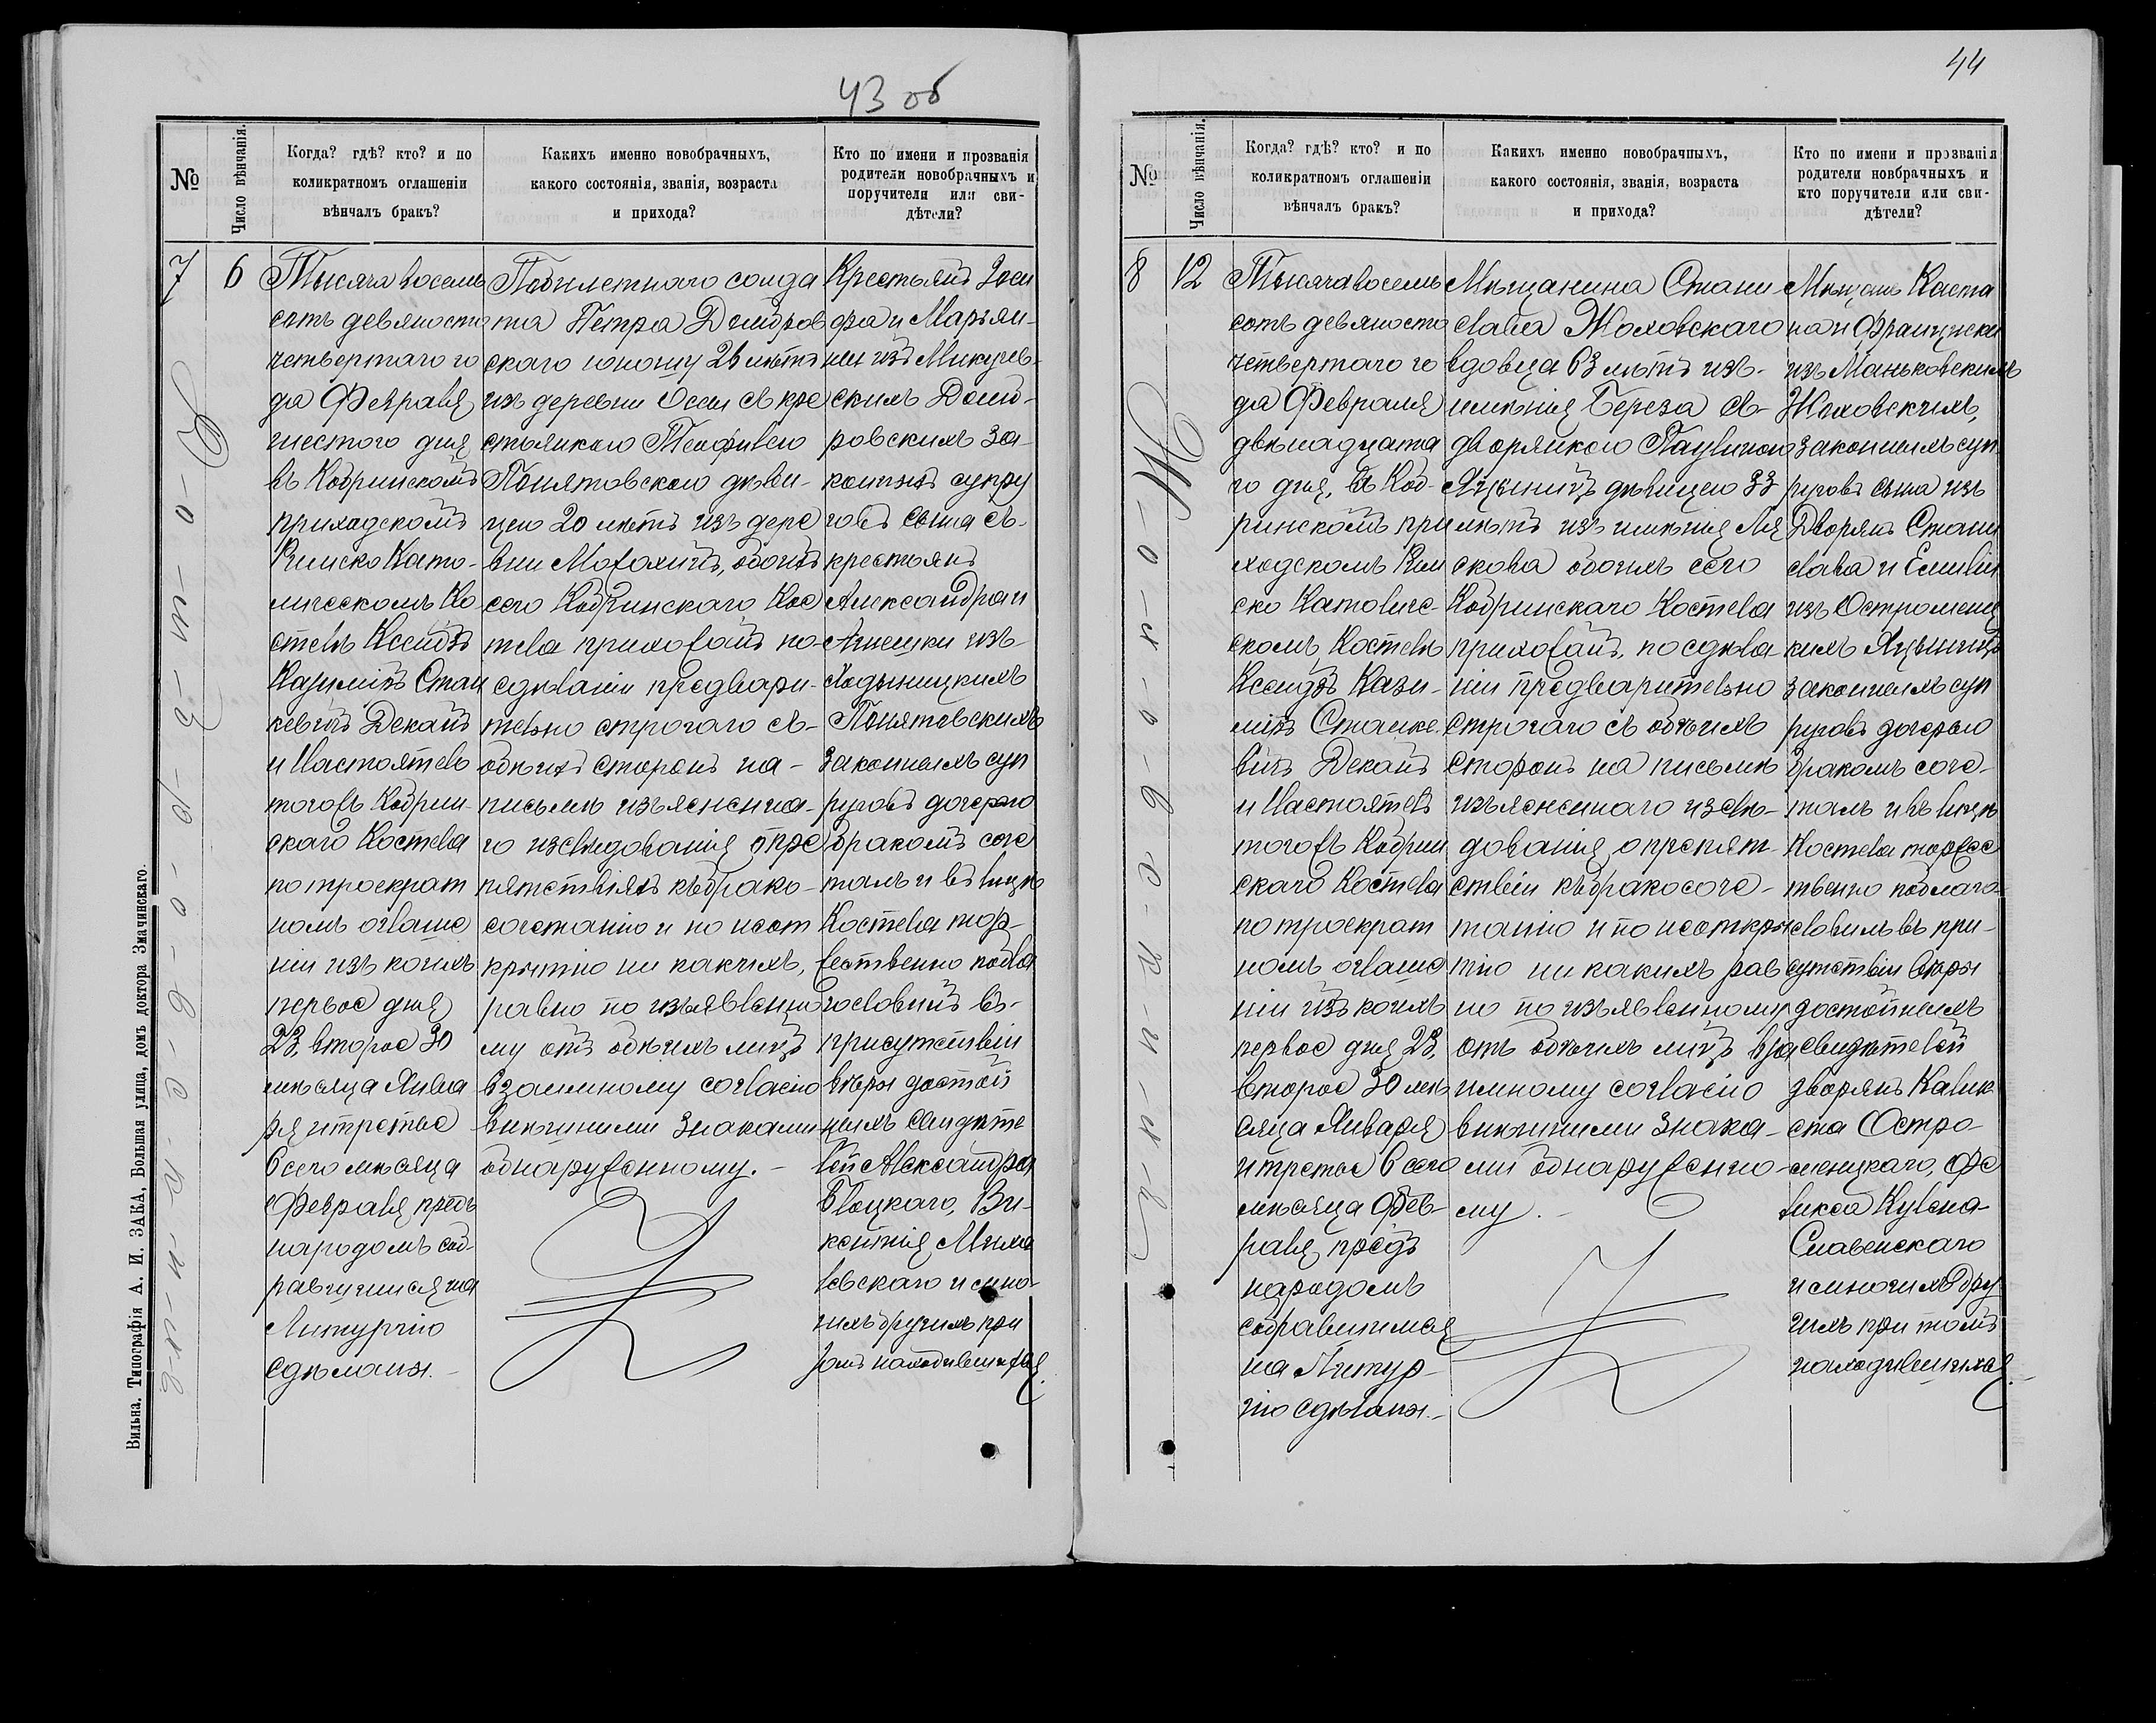 43 об
№
Число вѣнчанія.
Когда? гдѣ? кто? и по
коликратномъ оглашеніи
вѣнчалъ бракъ?
Какихъ именно новобрачныхъ,
какого состоянія, званія, возраста
и прихода?
Кто по имени и прозванія
родители новобрачныхъ и
поручители или сви-
дѣтели?
7
6
Тысяча восемь
сотъ девяносто
четвертаго го
да Февраля
шестого дня
въ Кобринскомъ
приходскомъ
Римско Като-
лическомъ Ко
стелѣ Ксендзъ
Казимиръ Стан
кевичъ Деканъ
и Настоятель
тогожъ Кобрин-
скаго Костела
по троекрат
номъ оглаше
ніи изъ коихъ
первое дня
23, второе 30
мѣсяца Янва
ря и третье
6 сего мѣсяца
Февраля предъ
народомъ соб-
равшимся на
Литургію
сдѣланы.
Побилетнаго солда
та Петра Домбров
скаго юношу 26 лѣтъ
изъ деревни Осы съ кре
стьянкою Теофилею
Понятовскою дѣви-
цею 20 лѣтъ изъ дере
вни , обоихъ
сего Кобринскаго Кос
тела прихожанъ по
сдѣланіи предвари-
тельно строгаго съ-
обѣихъ сторонъ на-
письмѣ изъясненна-
го изслѣдованія о пре
пятствіяхъ къ брако-
сочетанію и по неот
крытію ни какихъ,
равно по изъявленно
му отъ обѣихъ лицъ
взаимному согласію
внѣшними знаками
обнаруженному. -
Крестьянъ Зоси
фа и Марьян-
ны изъ Микулев-
скихъ Домб-
ровскихъ за-
конныхъ супру
говъ сына съ-
крестьянъ
Александра и
Агнешки изъ-
Ходыницкихъ
Понятовскихъ
законныхъ суп
руговъ дочерью
бракомъ соче
талъ и въ лицѣ
Костела торж-
ественно побла
гословилъ въ-
присутствіи
вѣры достой
ныхъ свидѣте
лей Александра
Блоцкаго, Ви-
кентія Миха
левскаго и мно-
гихъ другихъ при
томъ находившихся.
Вильна. Типографія А. И. ЗАКА, Большая улица, домъ доктора Змачинскаго.
44
№
Число вѣнчанія.
Когда? гдѣ? кто? и по
коликратномъ оглашеніи
вѣнчалъ бракъ?
Какихъ именно новобрачныхъ,
какого состоянія, званія, возраста
и прихода?
Кто по имени и прозванія
родители новбрачныхъ и
кто поручители или сви-
дѣтели?
8
12
Тысяча восемь
сотъ девяносто
четвертаго го
да Февраля
двѣнадцата
го дня, въ Коб-
ринскомъ при
ходскомъ Рим
ско Католиче-
скомъ Костелѣ
Ксендзъ Кази-
миръ Станке-
вичъ Деканъ
и Настоятель
тогожъ Кобрин
скаго Костела
по троекрат
номъ оглаше
ніи изъ коихъ
первое дня 23,
второе 30 мѣ
сяца Января
и третье 6 сего
мѣсяца Фев-
раля предъ
народомъ
собравшимся
на Литур-
гію сдѣланы.
Мѣщанина Стани-
слава Жоховскаго
вдовца 63 лѣтъ изъ-
имѣнія Береза съ-
дворянкою Паулиною
Яцыничъ дѣвицею 33
лѣтъ изъ имѣнія Ля
скова обоихъ сего
Кобринскаго Костела
прихожанъ, по сдѣла-
ніи предварительно
строгаго съ обѣихъ
сторонъ на письмѣ
изъясненнаго изслѣ-
дованія о препят-
ствіи къ бракосоче-
танію и по неоткры
тію ни какихъ рав
но по изъявленному
отъ обѣихъ лицъ вза
имному согласію
внѣшними знака-
ми обнаруженно-
му. -
Мѣщанъ Каста
на и Францишки
изъ Маньковскихъ
Жоховскихъ,
законныхъ суп
руговъ сына изъ
Дворянъ Стани
слава и Емиліи
изъ Остромец
кихъ Яцыничъ
законныхъ суп
руговъ дочерью
бракомъ соче-
талъ и въ лицѣ
Костела торжес
твенно поблаго-
словилъ въ при-
сутствіи вѣры
достойныхъ
свидѣтелей
дворянъ Калик-
ста Остро-
менцкаго, Фе
ликса Кулеша-
Славенскаго
и многихъ дру
гихъ при томъ
находившихся.